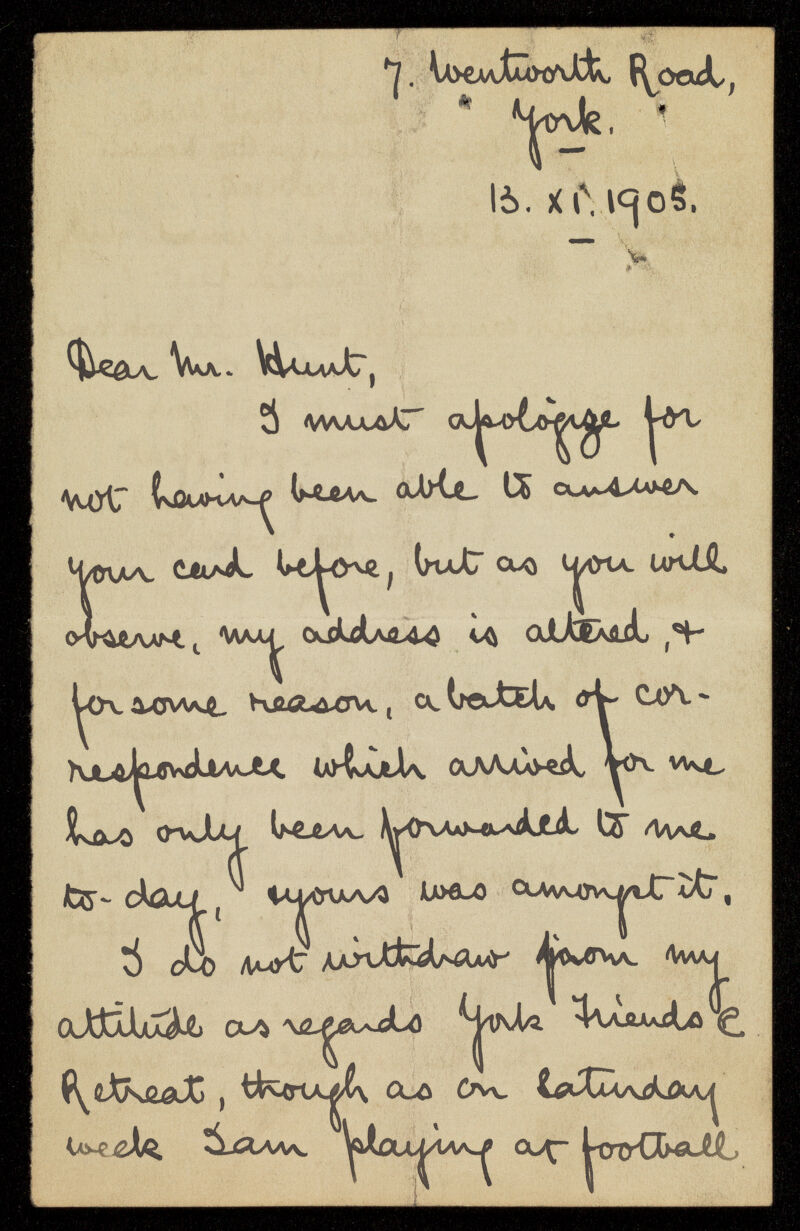 7. Wentworth Road,
York.
13. XI. 1905.
Dear Mr. Hunt,
I must apologize for
not having been able to answer
your card before, but as you will
observe, my address is altered, &
for some reason, a batch of cor-
respondence which arrived for me
has only been forwarded to me
to-day, & yours was amongst it.
I do not withdraw from my
attitude as regards York Friends @
Retreat, though as on Saturday
week I am playing at football